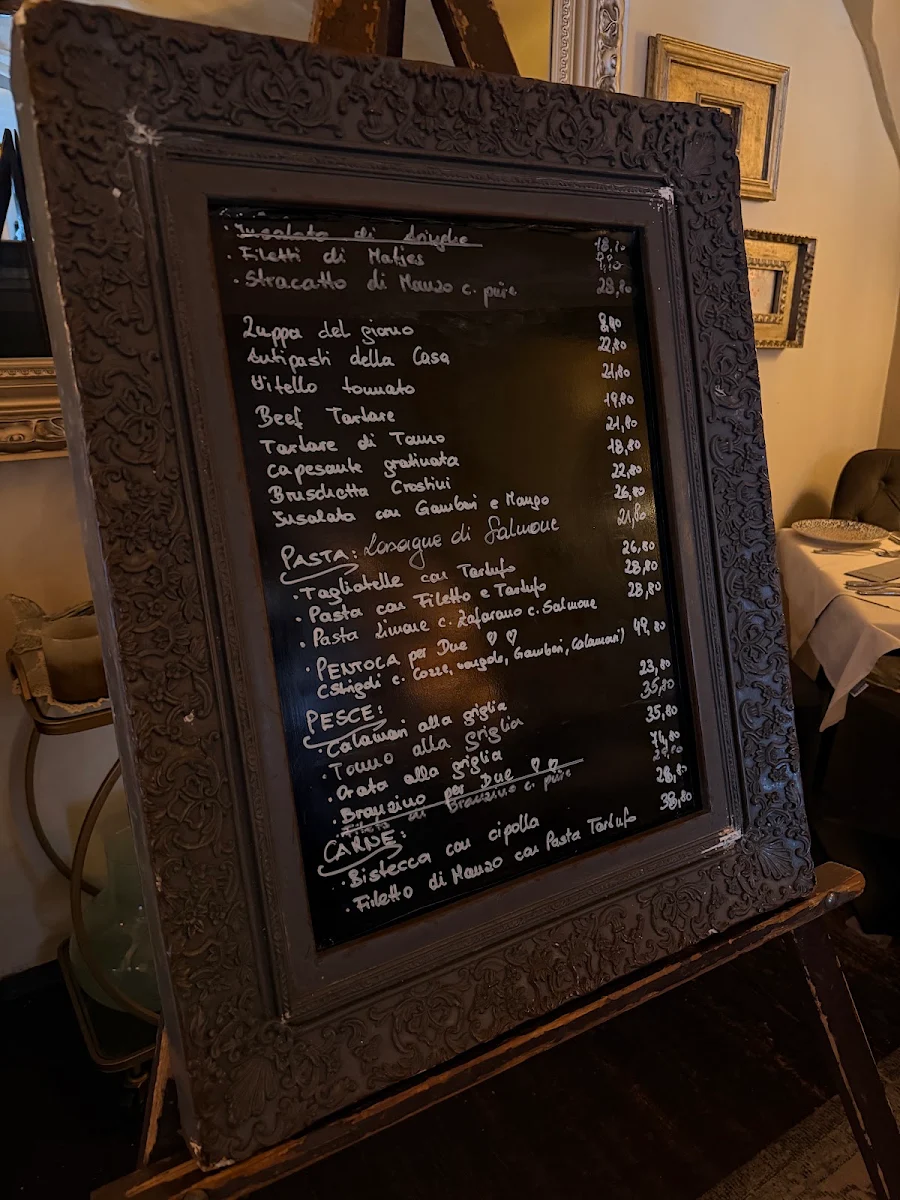 · Insalata di
· Filetti di Matjes
· Stracatto di Manzo c. püre 28,80
Zuppa del giorno 8,90
Antipasti della Casa 22,80
Vitello tonnato 21,80
Beef Tartare 19,80
Tartare di Tonno 21,80
Capesante gratinata 18,80
Bruschetta Crostini 22,80
Insalata con Gamberi e Mango 26,80
PASTA: Lasagne di Salmone 21,80
· Tagliatelle con Tartufo 26,80
· Pasta con Filetto e Tartufo 28,80
· Pasta Limone c. Zafarano c. Salmone 28,80
· PENTOCA per Due ♡ ♡ 49,80
(Strigoli c. Cozze, vongole, Gamberi, Calamari)
PESCE: 23,80
· Calamari alla griglia 35,80
· Tonno alla griglia 35,80
· Orata alla griglia
· Branzino per Due ♡ ♡ 74,80
· Fileto di Branzino c. püre
CARNE:
· Bistecca con cipolla 28,80
· Filetto di Manzo con Pasta Tartufo 38,80